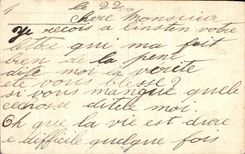 le 22
Chere Monsieur
Je recois a linsten votre
letre qui ma fait
bien de la pene
dite moi la verite
ete vous blesse ?
si vous manque quelle
chose dite le moi.
Oh que la vie est drole
e difficile quelque fois